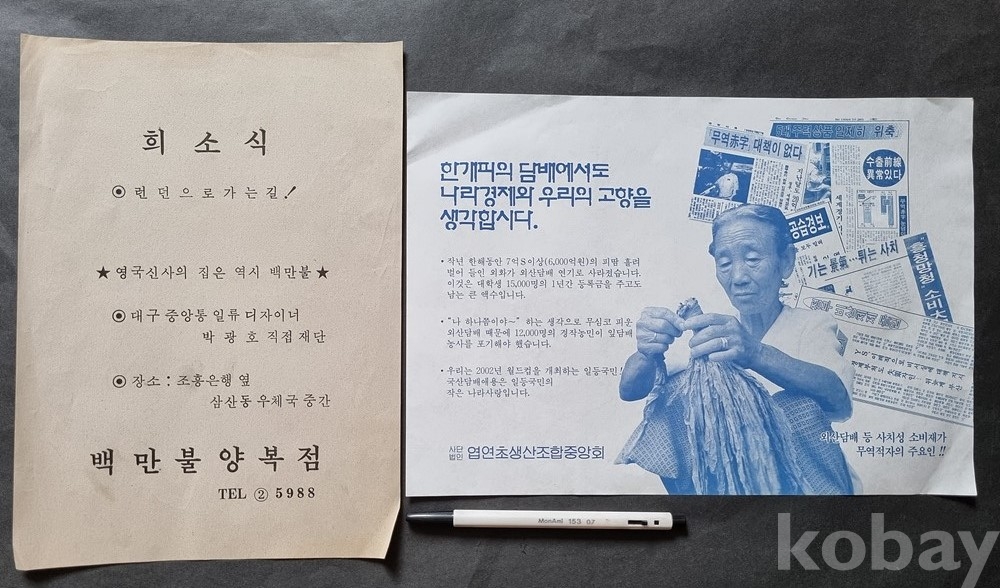 희소식
◉ 런던으로가는길!
★ 영국신사의 집은 역시 백만불 ★
◉ 대구 중앙통 일류 디자이너
박광호 직접재단
◉ 장소 : 조흥은행 옆
삼산동 우체국 중간
백만불양복점
TEL ② 5988
한개피의 담배에서도
나라경제와 우리의 고향을
생각합시다.
• 작년 한해동안 7억$이상(6,000억원)의 피땀 흘려
벌어 들인 외화가 외산담배 연기로 사라졌습니다.
이것은 대학생 15,000명의 1년간 등록금을 주고도
남는 큰 액수입니다.
• "나 하나쯤이야~" 하는 생각으로 무심코 피운
외산담배 때문에 12,000명의 경작농민이 잎담배
농사를 포기해야 했습니다.
• 우리는 2002년 월드컵을 개최하는 일등국민!
국산담배애용은 일등국민의
작은 나라사랑입니다.
사단법인 엽연초생산조합중앙회
무역赤字 대책이 없다
위축
수출前線
異常있다
공습경보
가는 景氣…튀는 사치
흥청망청 소비
외산담배 등 사치성 소비재가
무역적자의 주요인 !!
MonAmi 153 07
kobay